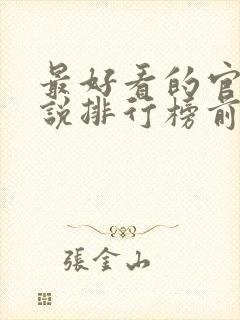 最好看的官
說排行榜前
張金山